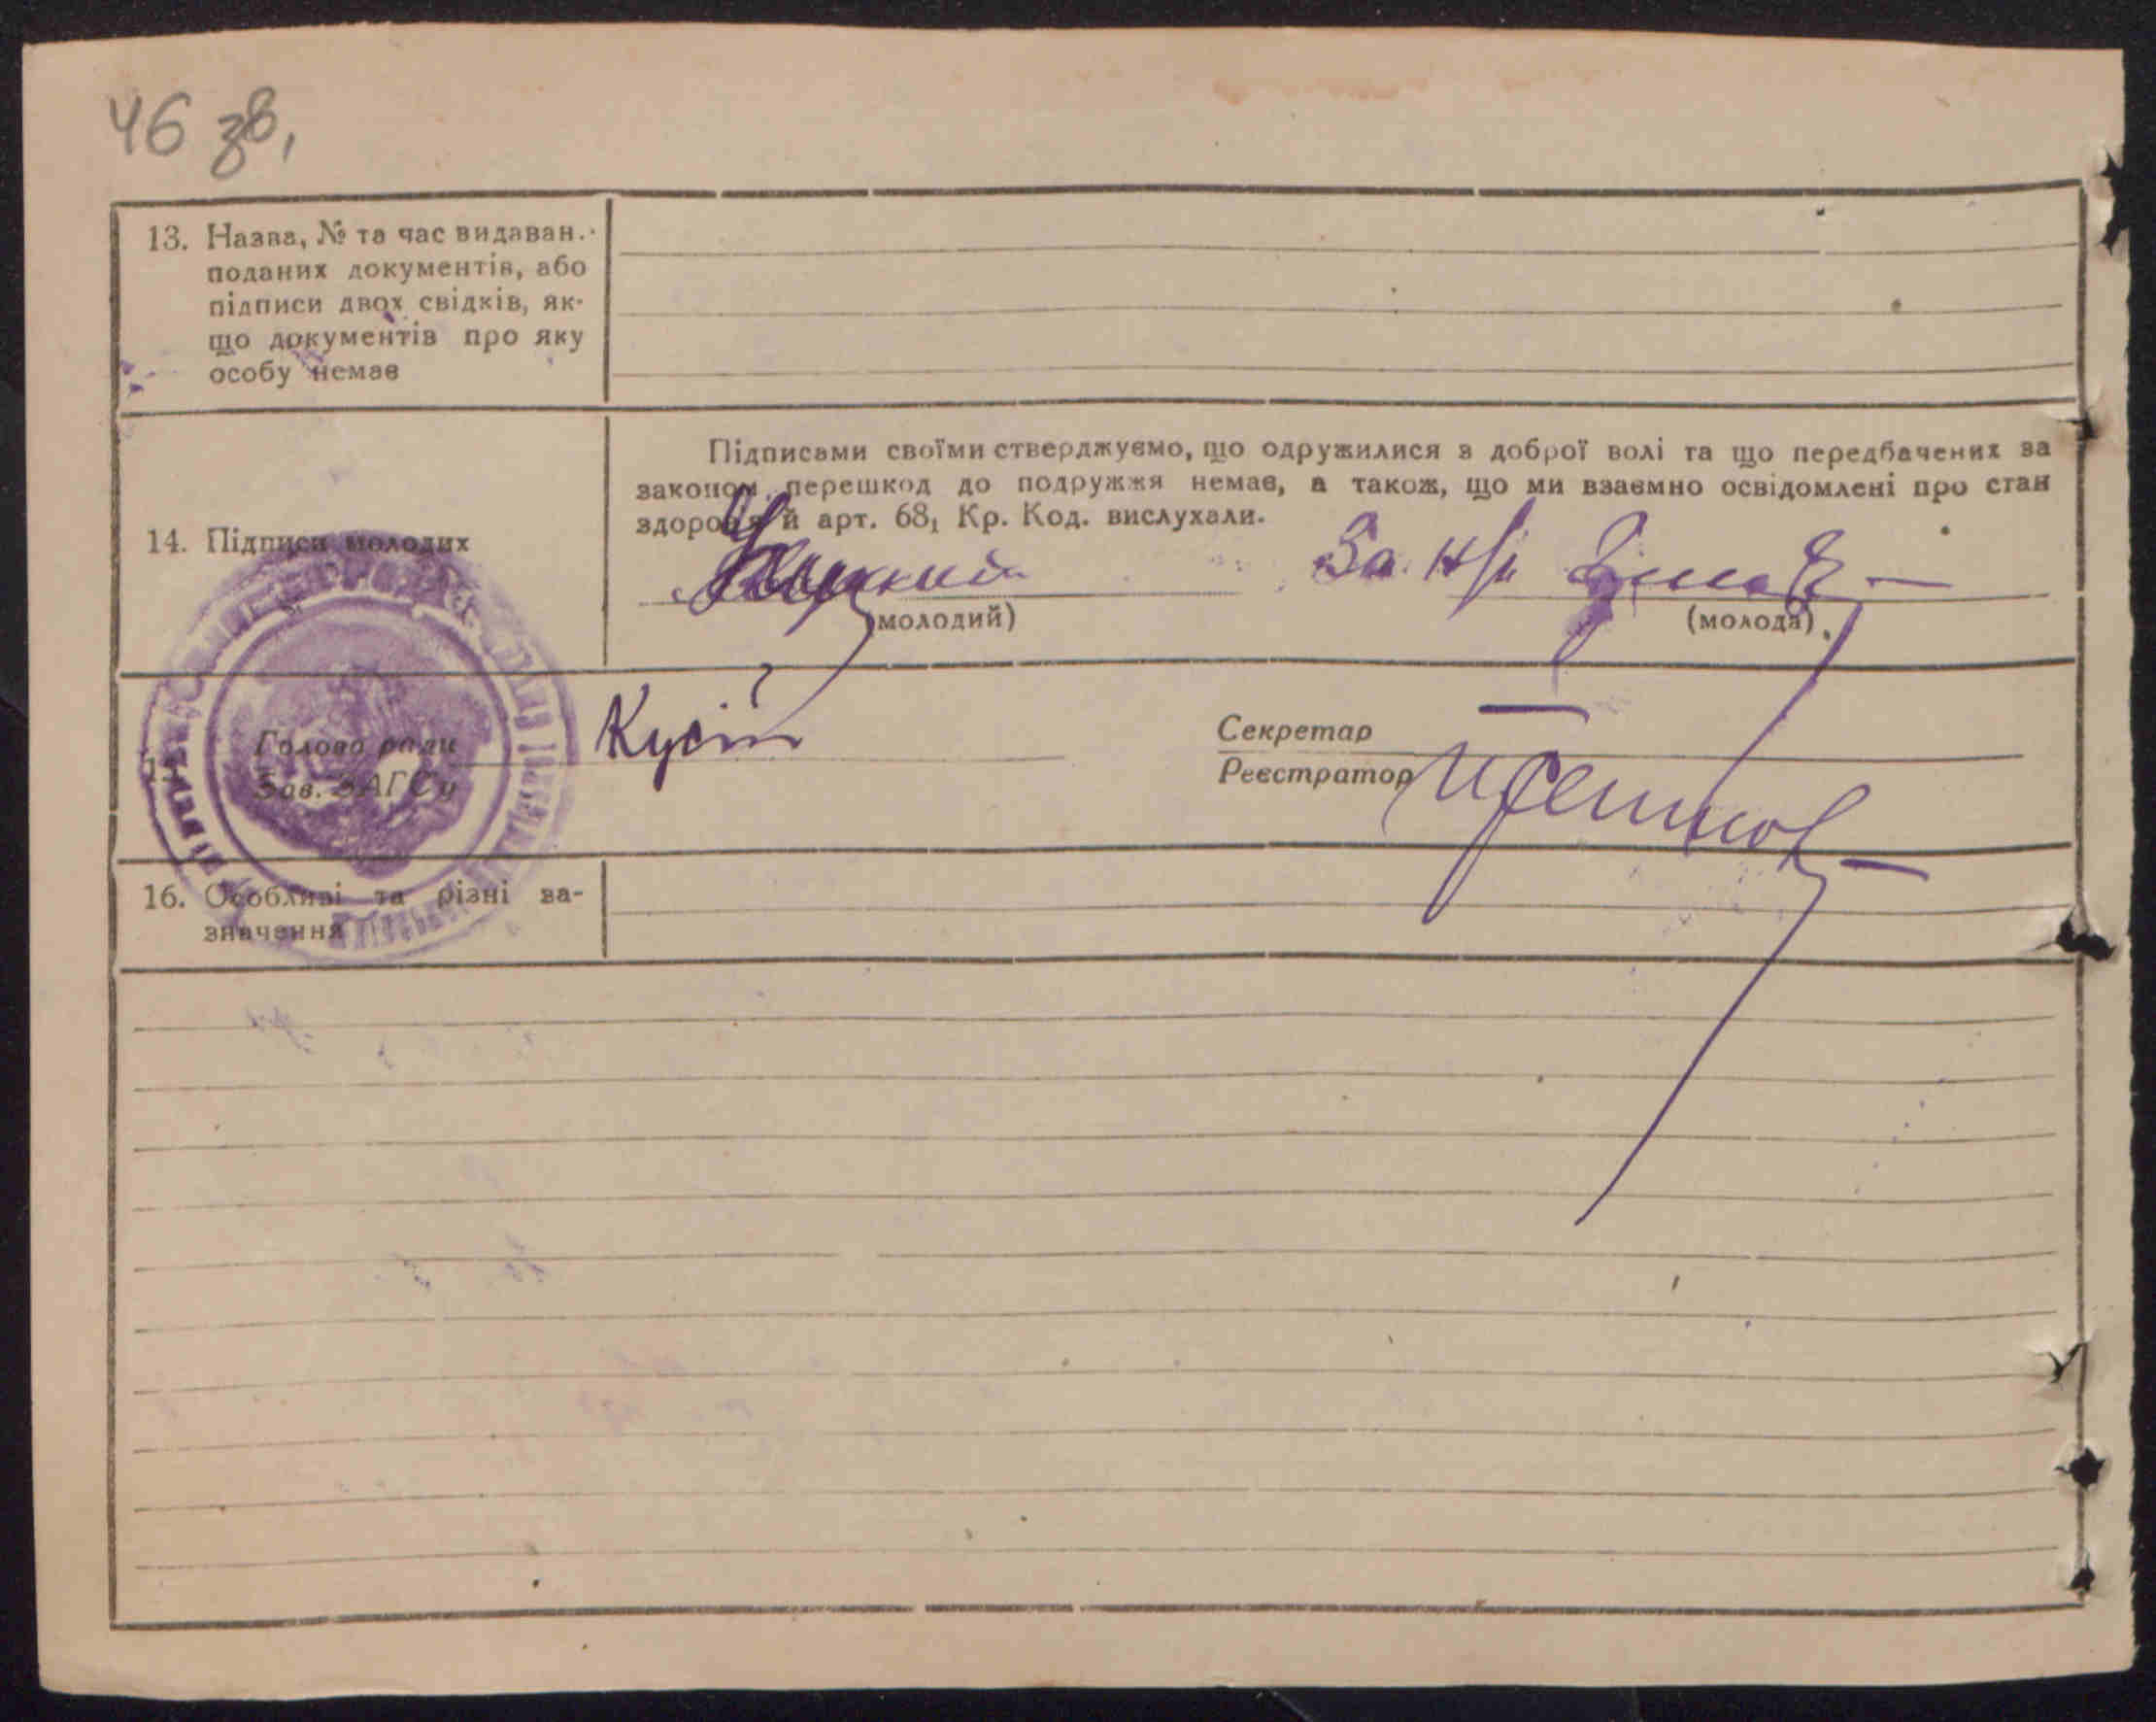 46 зв,
13. Назва, № та час видаван.
поданих документів, або
підписи двох свідків, як-
що документів про яку
особу немає
Підписами своїми стверджуємо, що одружилися з доброї волі та що передбачених за
законом перешкод до подружжя немає, а також, що ми взаємно освідомлені про стан
здоров'я й арт. 68₁ Кр. Код. вислухали.
14. Підписи молодих
За н/п
(молодий) (молода)
Голова ради Секретар
Зав. ЗАГС'у Реєстратор
16. Особливі та різні за-
значення